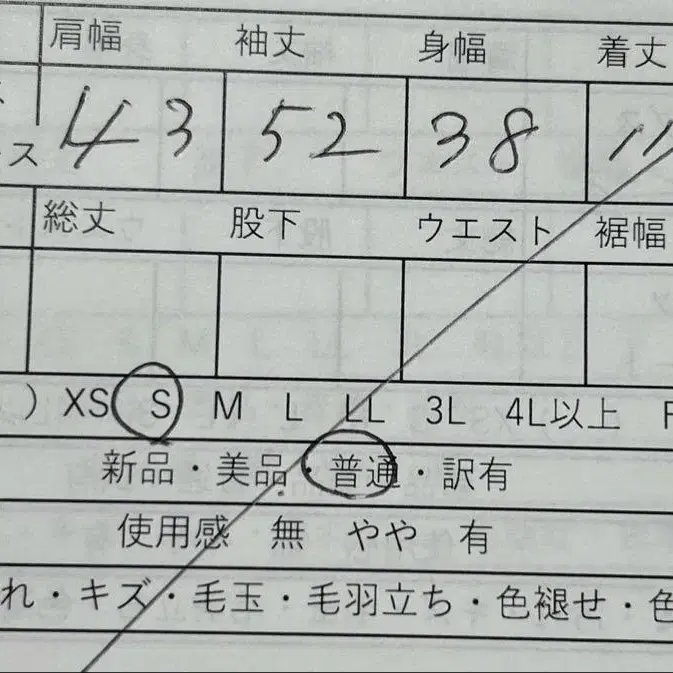 肩幅 袖丈 身幅 着丈
ス 43 52 38 11
総丈 股下 ウエスト 裾幅
) XS S M L LL 3L 4L以上 F
新品・美品・普通・訳有
使用感 無 やや 有
れ・キズ・毛玉・毛羽立ち・色褪せ・色